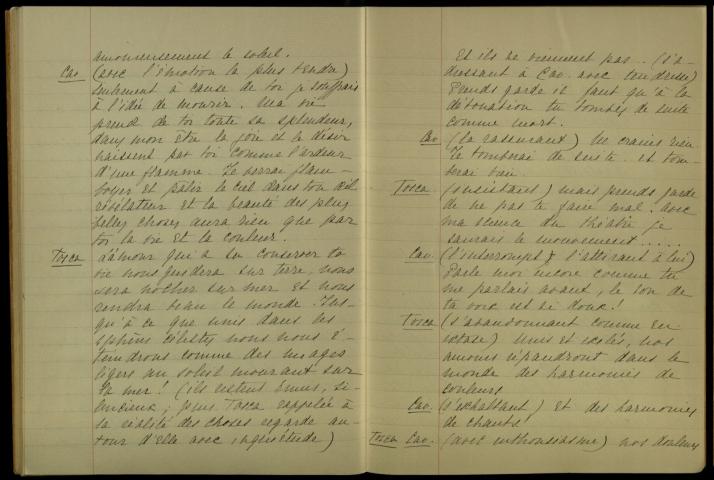 amoureusement le soleil.
Cav. (avec l'émotion la plus tendre)
seulement à cause de toi je souffrais
à l'idée de mourir. Ma vie
prend de toi toute sa splendeur,
dans mon être la joie et le désir
naissent par toi comme l'ardeur
d'une flamme. Je verrai flam-
boyer et pâlir le ciel dans ton œil
révélateur et la beauté des plus
belles choses aura rien que par
toi la vie et la couleur.
Tosca L'amour qui a su conserver ta
vie nous guidera sur terre, nous
sera nocher sur mer et nous
rendra beau le monde. Jus-
qu'à ce que unis dans les
sphères célestes nous nous é-
tendrons comme des nuages
légers au soleil mourant sur
la mer! (ils restent émus, si-
lencieux; puis Tosca rappelée à
la réalité des choses regarde au-
tour d'elle avec inquiétude)
Et ils ne viennent pas... (s'a-
dressant à Cav. avec tendresse)
Prends garde il faut qu'à la
détonation tu tombes de suite
comme mort.
Cav (la rassurant) Ne crains rien
Je tomberai de suite et tom-
berai bien
Tosca (insistant) mais prends garde
de ne pas te faire mal. Avec
ma science du théâtre je
saurais le mouvement.....
Cav. (l'interrompt & l'attirant à lui)
Parle moi encore comme tu
me parlais avant, le son de
ta voix est si doux!
Tosca (s'abandonnant comme en
extase) Unis et exilés, nos
amours répandront dans le
monde des harmonies de
couleurs
Cav. (s'exaltant) Et des harmonies
de chants
Tosca Cav. (avec enthousiasme) nos douleurs